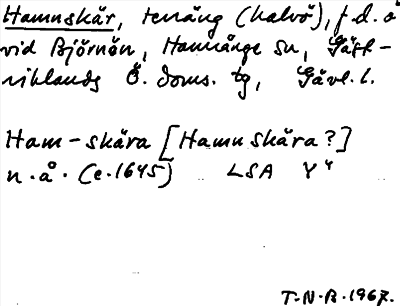 Hamnskär, terräng (halvö), f.d. ö
vid Björnön, Hamrånge sn, Gäst-
riklands Ö. doms. tg, Gävl. l.
Ham-skära [Hamnskära?]
n. å. (e. 1645) LSA Y4
T.N.B. 1967.